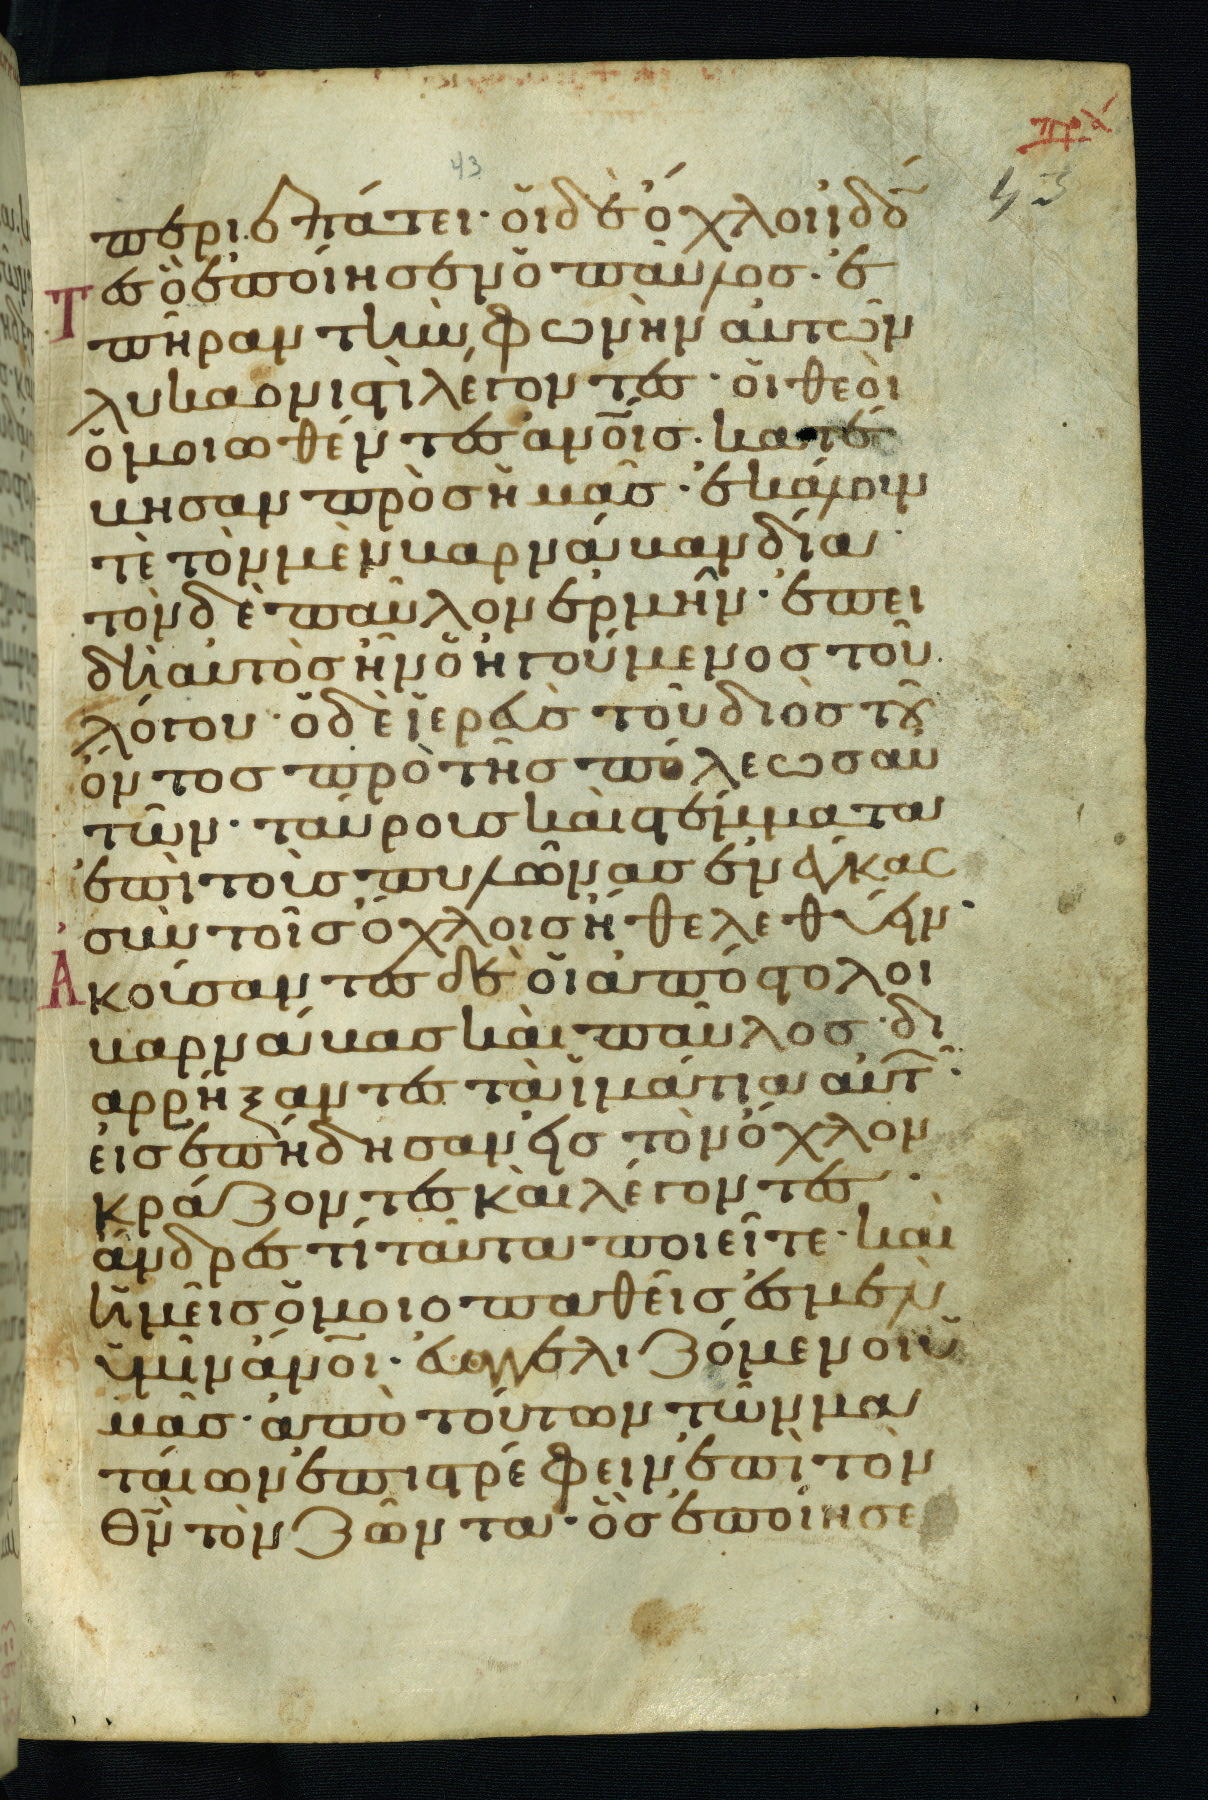 43
περιεπάτει· οἱ δὲ ὄχλοι ἰδό
τες ὃ ἐποίησεν ὁ παῦλος· ἐ
πῆραν τὴν φωνὴν αὐτῶν
λυκαονιστὶ λέγοντες· οἱ θεοὶ
ὁμοιωθέντες ἀνοῖς· κατέ
βησαν πρὸς ἡμᾶς· ἐκάλουν
τὲ τὸν μὲν βαρνάβαν δία·
τὸν δὲ παῦλον ἑρμῆν· ἐπει
δὴ αὐτὸς ἦν ὁ ἡγούμενος τοῦ
λόγου· ὁ δὲ ἱερεὺς τοῦ διὸς τοῦ
ὄντος πρὸ τῆς πόλεως αὐ
τῶν· ταύροις καὶ στέμματα
ἐπὶ τοὺς πυλῶνας ἐνέγκας
σὺν τοῖς ὄχλοις ἤθελε θύειν·
Ἀκούσαντες δὲ οἱ ἀπόστολοι
βαρνάβας καὶ παῦλος· δι
αρρήξαντες τὰ ἱμάτια αὐτ·
εἰσεπήδησαν εἰς τὸν ὄχλον
κράζοντες καὶ λέγοντες·
ἄνδρες τί ταῦτα ποιεῖτε· καὶ
ἡμεῖς ὁμοιοπαθεῖς ἐσμὲν
ὑμῖν ἄνοι· εὐαγγελιζόμενοι ὑ
μᾶς· ἀπὸ τούτων τῶν μα
ταίων ἐπιστρέφειν ἐπὶ τὸν
θν τὸν ζῶντα· ὃς ἐποίησε